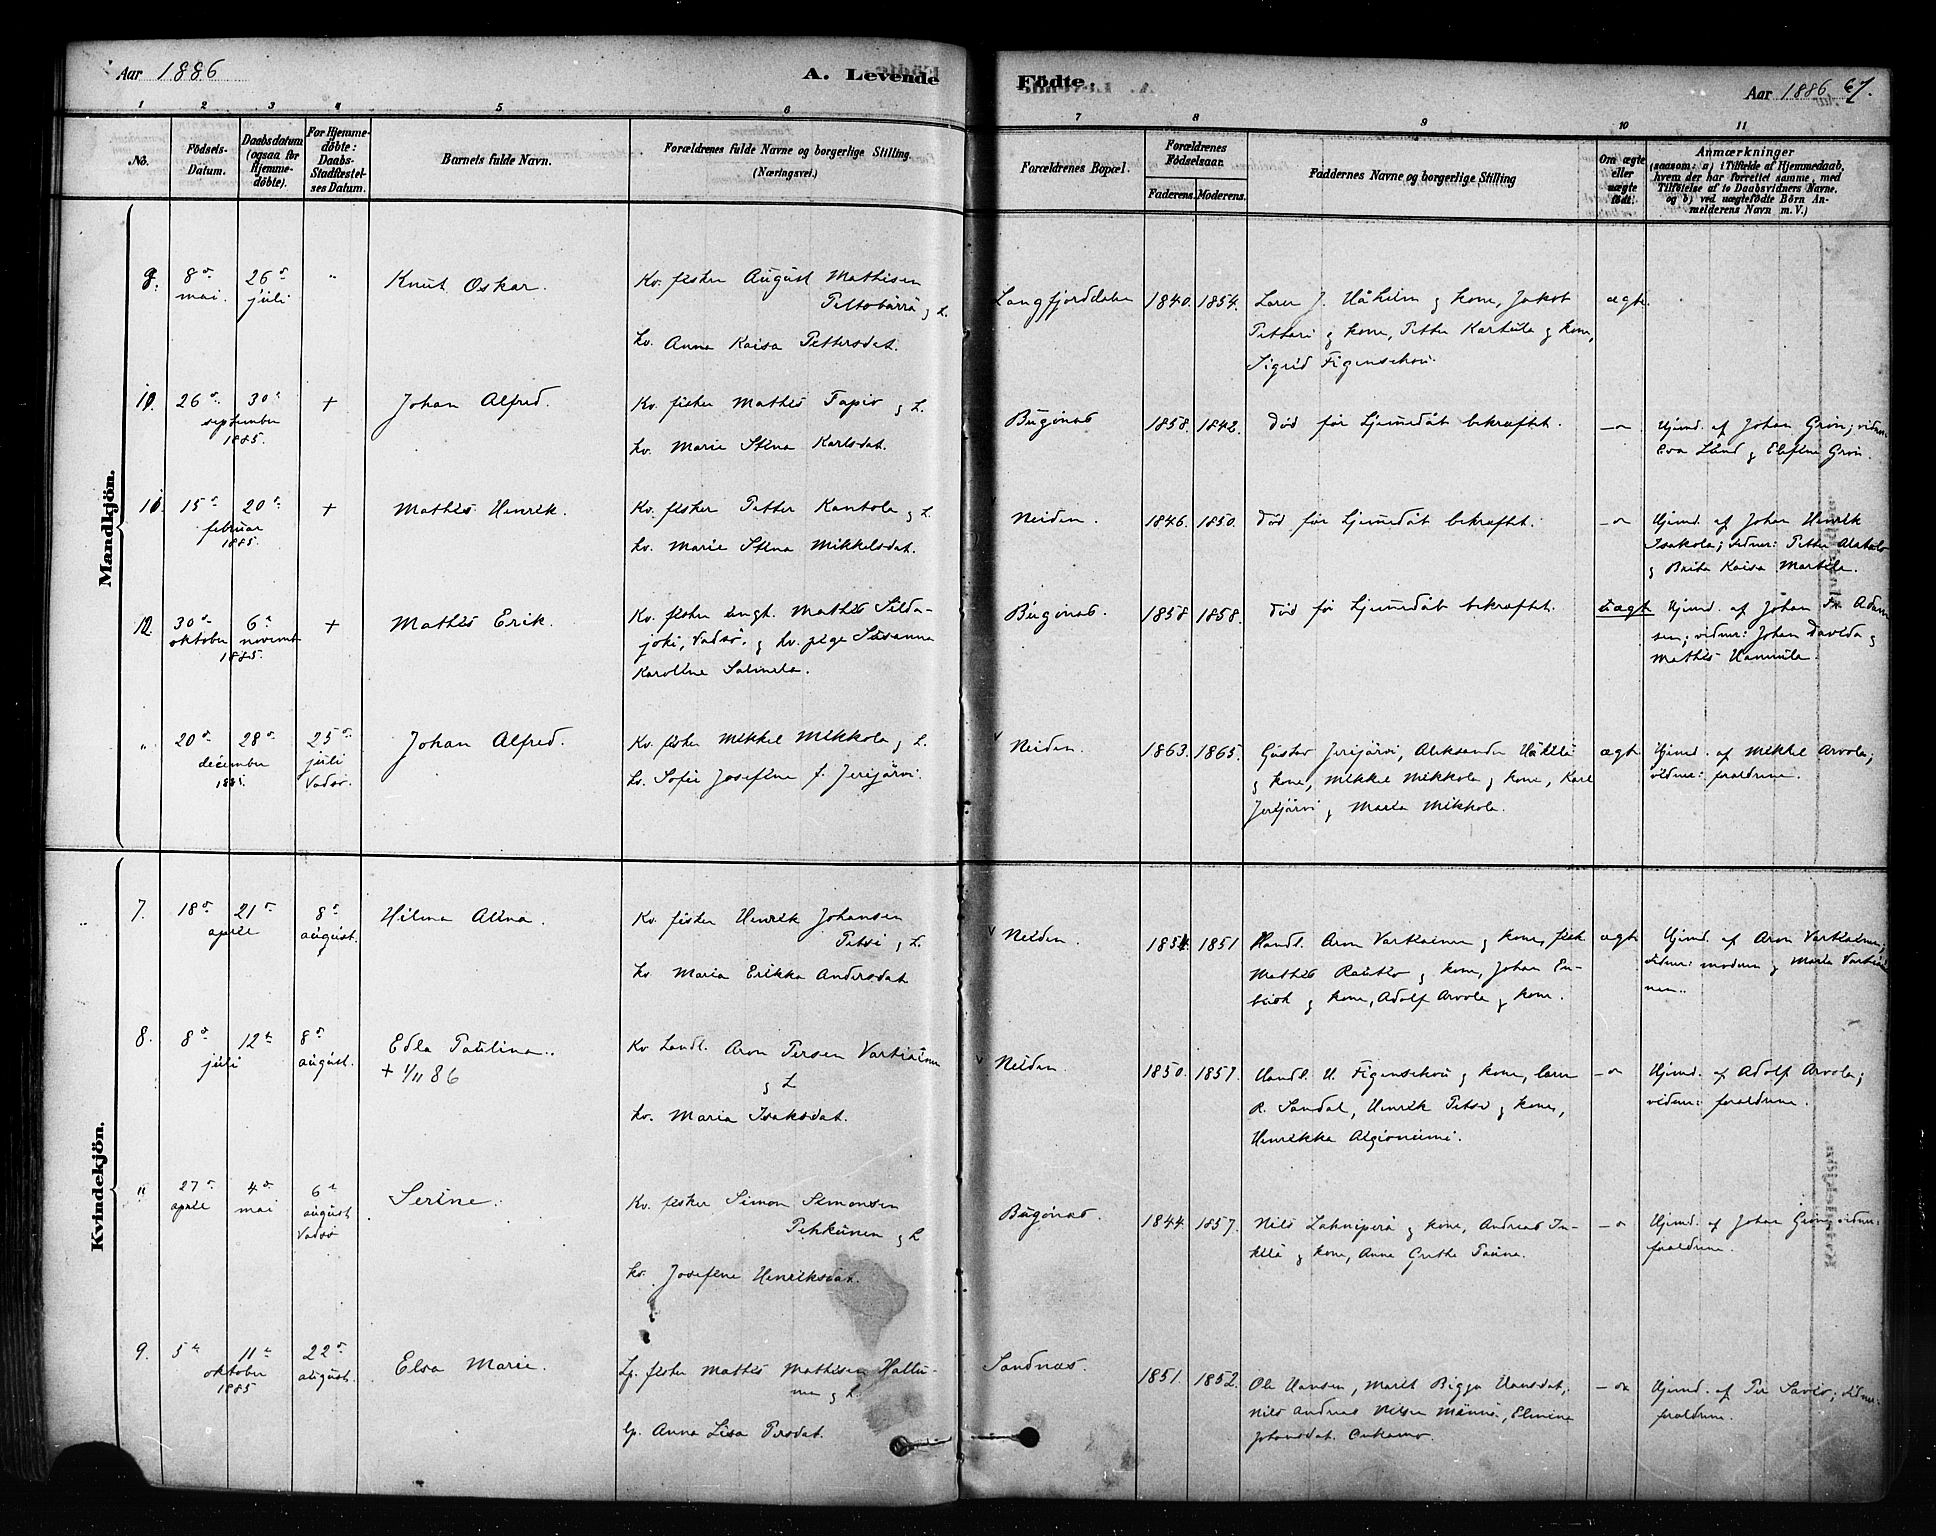 Aar 1886
A. Levende
Födte.
Aar 1886 67.
1 2 3 4 5 6 7 8 9 10 11
No.
Födsels-
Datum.
Daabsdatum
(ogsaa for
Hjemme-
döbte).
For Hjemme-
döbte:
Daabs-
Stadfæstel-
ses Datum.
Barnets fulde Navn.
Forældrenes fulde Navne og borgerlige Stilling.
(Næringsvei.)
Forældrenes Bopæl.
Forældrenes
Födselsaar.
Faderens. Moderens.
Faddernes Navne og borgerlige Stilling
Om ægte
eller
uægte
födt.
Anmærkninger
(saasom: a) i Tilfælde af Hjemmedaab,
hvem der har forrettet samme, med
Tilföielse af to Daabsvidners Navne,
og b) ved uægtefödte Börn An-
melderens Navn m. V.)
Mandkjön.
9. 8de mai. 26de juli "
Knut Oskar.
Kv. fisker August Mathisen
Peltobärrä og L.
kv. Anna Kaisa Pettersdat.
Langfjorddalen 1840. 1854.
Lærer J. Håheim og kone, Jakob
Pettari og kone, Petter Karkula og kone,
Sigrid Figenschou.
ægte
10. 26de 30te september 1885. +
Johan Alfred.
Kv. fisker Mathis Tapio og L.
kv. Marie Stina Karlsdat.
Bugönæs 1858. 1842.
Död för hjemmedåb bekræftet.
—"—
Hjemd. af Johan Grön; vidner:
Eva Lund og Eleftine Grön.
10. 15de 20de februar 1885. +
Mathis Henrik.
Kv. fisker Petter Kantola og L.
kv. Marie Stina Mikkelsdat.
Neiden. 1846. 1850.
Död för hjemmedåb bekræftet.
—"—
Hjemd. af Johan Henrik
Isakola; vidner: Petter Alatalo
og Brita Kaisa Martila.
12. 30de oktober 6te novemb. 1885. +
Mathis Erik.
Kv. fisker ungk. Mathis Silda-
joki, Vadsö, og kv. pige Susanna
Karoline Salmela.
Bugönæs. 1858 1858.
Död för hjemmedåb bekræftet.
uægte
Hjemd. af Johan Fr. Adam
sen; vidner: Johan Davida og
Mathis Hannula.
" 20de 28de december 1885. 25de juli Vadsö.
Johan Alfred.
Kv. fisker Mikkel Mikkola og L.
kv. Sofie Josefine f. Jerijärvi.
Neiden. 1863. 1865.
Gustav Jerijärvi, Aleksander Häkkli
og kone, Mikkel Mikkola og kone, Karl
Jerijärvi og Maria Mikkola.
ægte
Hjemd. af Mikkel Arvola;
vidner: forældrene.
Kvindekjön.
7. 18de 21de april 8de august.
Hilma Alina.
Kv. fisker Henrik Johansen
Petsi og L.
kv. Maria Erikka Andersdat
Neiden. 1851. 1851
Handl. Aron Vartiainen og kone, fisk
Mathis Rautio og kone, Johan En-
busk og kone, Adolf Arvola og kone.
ægte
Hjemd. af Aron Vartiainen;
vidner: moderen og Maria Vartiai
nen..
8. 8de 12te juli 8de august.
Edla Paulina..
+ 1/11 86
Kv Landl. Aron Persen Vartiainen
og L
kv. Maria Isaksdat.
Neiden. 1850. 1857.
Handl. H. Figenschou og kone, lærer
R. Sandal, Henrik Petsi og kone,
Henrikka Algioniemi.
—"—
Hjemd. af Adolf Arvola;
vidner: forældrene.
" 27de april 4de mai 6te august Vadsö
Serine.
Kv. fisker Simon Simonsen
Pekkunen og L
kv. Josefine Henriksdat.
Bugönæs. 1844. 1857.
Nils Lahniperä og kone, Andreas In-
kilä og kone, Anna Grethe Pauna.
—"—
Hjemd. af Johan Grön, vidner:
forældrene.
9. 5te 11te oktober 1885 22de august.
Elsa Marie.
Lp. fisker Mathis Mathisen Hallu-
nen og L.
lp. Anna Lisa Persdat.
Sandnæs. 1851. 1852.
Ole Hansen, Marit Bigga Hansdat,
Nils Andreas Nilsen Männi, Elmine
Johansdat. Onkamo.
—"—
Hjemd. af Per Savio; vidner:
forældrene.